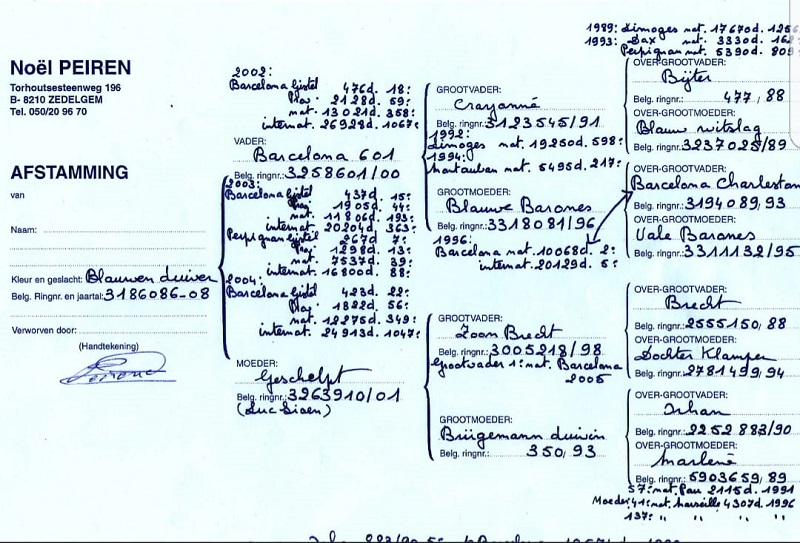 Noël PEIREN
Torhoutsesteenweg 196
B- 8210 ZEDELGEM
Tel. 050/20 96 70
AFSTAMMING
van
Naam:
Kleur en geslacht: Blauwen duiver
Belg. Ringnr. en jaartal: 3186086-08
Verworven door:
(Handtekening)
2002:
Barcelona Gistel 476d. 18:
Prov 2128d. 59:
nat. 13021d. 358:
internat. 26928d. 1067:
VADER:
Barcelona 601
Belg. ringnr.: 3258601/00
2003:
Barcelona Gistel 437d. 15:
Prov 1905d. 44:
nat. 11806d. 193:
internat. 20204d. 363:
Perpignan Gistel 267d 7:
Prov 1298d. 13:
nat. 7537d. 39:
internat. 16800d. 88:
2004:
Barcelona Gistel 423d. 22:
Prov 1822d. 56:
nat. 12275d. 349:
internat. 24913d. 1047:
MOEDER:
Geschelpt
Belg. ringnr.: 3263910/01
(Luc Sioen)
GROOTVADER:
Crayonné
Belg. ringnr.: 3123545/91
1992:
Limoges nat. 19250d. 598:
1994:
Montauban nat. 5495d. 217:
GROOTMOEDER:
Blauwe Barones
Belg. ringnr.: 3318081/96
1996:
Barcelona nat. 10068d. 2:
internat. 20129d. 5:
GROOTVADER:
Zoon Brecht
Belg. ringnr.: 3005218/98
Grootvader 1: nat. Barcelona
2005
GROOTMOEDER:
Brügemann duivin
Belg. ringnr.: 350/93
1989: Limoges nat. 17670d. 1256
1993: Dax nat. 3330d. 162
Perpignan nat. 5390d. 809
OVER-GROOTVADER:
Bijter
Belg. ringnr.: 477/88
OVER-GROOTMOEDER:
Blauw witslag
Belg. ringnr.: 3237025/89
OVER-GROOTVADER:
Barcelona Charleston
Belg. ringnr.: 3194089/93
OVER-GROOTMOEDER:
Vale Barones
Belg. ringnr.: 3311132/95
OVER-GROOTVADER:
Brecht
Belg. ringnr.: 2555150/88
OVER-GROOTMOEDER:
Dochter Klamper
Belg. ringnr.: 2781499/94
OVER-GROOTVADER:
Irhan
Belg. ringnr.: 2252883/90
OVER-GROOTMOEDER:
Marlené
Belg. ringnr.: 5903659/89
57: nat. Pau 2115d. 1991
Moeder 41: nat. Marseille 4307d. 1996
137: " " " "